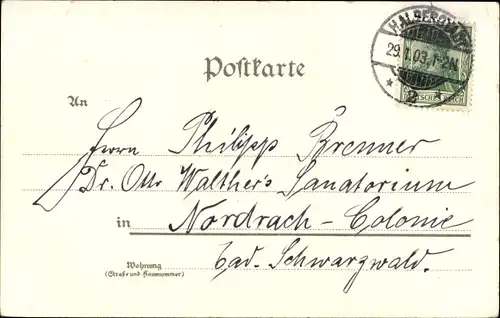 HALBERSTADT
29.1.03.1-2N.
* 2 *
DEUTSCHES REICH
Postkarte
An
Herrn Philipp Brenner
Dr. Otto Walther's Sanatorium
in Nordrach-Colonie
bad. Schwarzwald.
Wohnung
(Straße und Hausnummer)